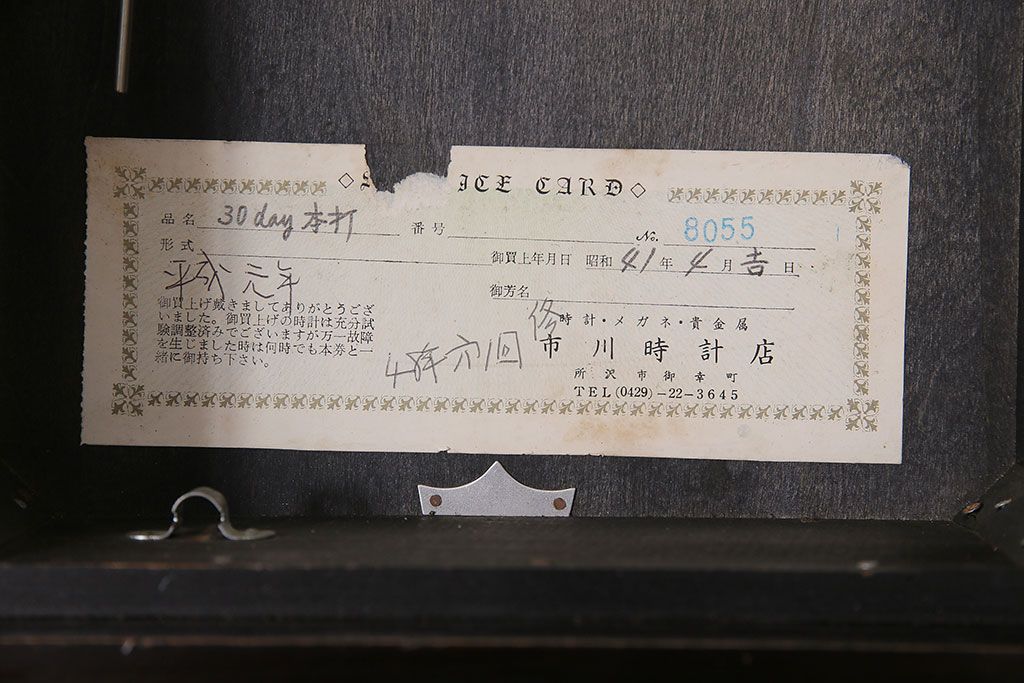 ICE CARD
品名 30day本打 番号 No. 8055
形式 御買上年月日 昭和 41 年 4 月 吉 日
平成元年
御芳名
御買上げ戴きましてありがとうござ
いました。御買上げの時計は充分試
験調整済みでございますが万一故障
を生じました時は何時でも本券と一
緒に御持ち下さい。
修
時計・メガネ・貴金属
市川時計店
所沢市御幸町
TEL (0429)-22-3645